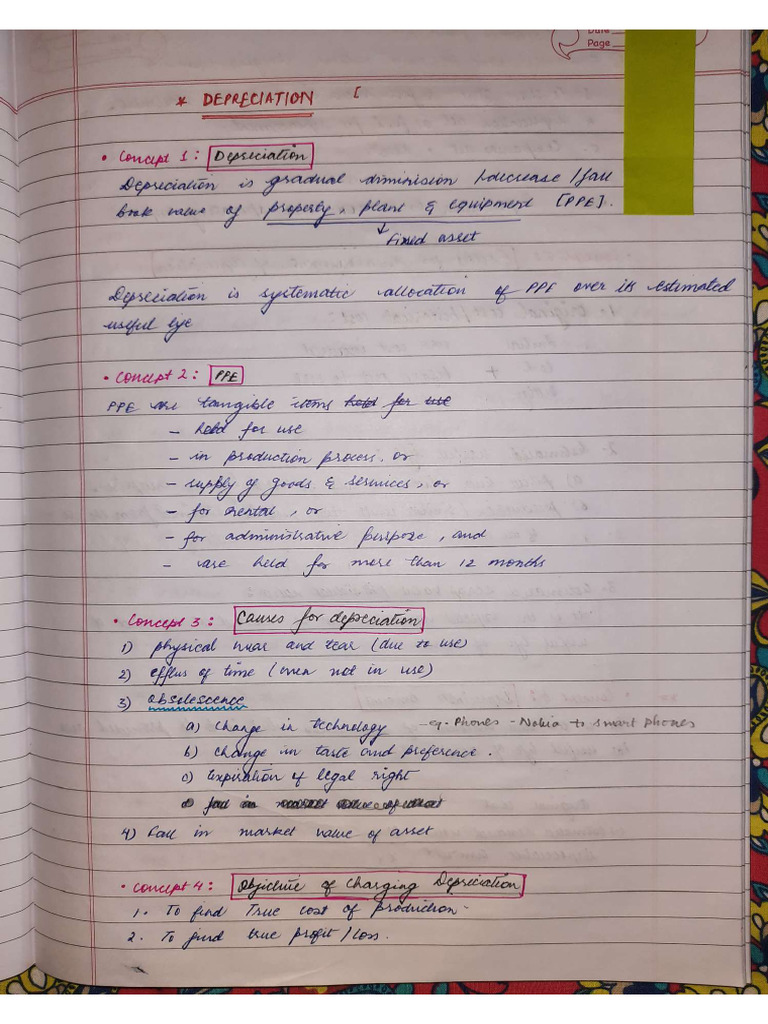 Date
Page
* DEPRECIATION [
• Concept 1 : Depreciation
Depreciation is gradual diminision / decrease / fall
book value of property, plant & equipment [PPE].
↓ fixed asset
Depreciation is systematic allocation of PPE over its estimated
useful lye
• Concept 2 : PPE
PPE are tangible items held for use
- held for use
- in production process, or
- supply of goods & services, or
- for rental, or
- for administrative purpose, and
- are held for more than 12 months
• Concept 3 : Causes for depreciation
1) physical wear and tear (due to use)
2) efflus of time (even not in use)
3) obsolescence
a) change in technology - eg. Phones - Nokia to smart phones
b) change in taste and preference.
c) expiration of legal right
d) fall in market value of
4) fall in market value of asset
• Concept 4 : Objective of charging Depreciation
1. To find True cost of production.
2. To find true profit / loss.